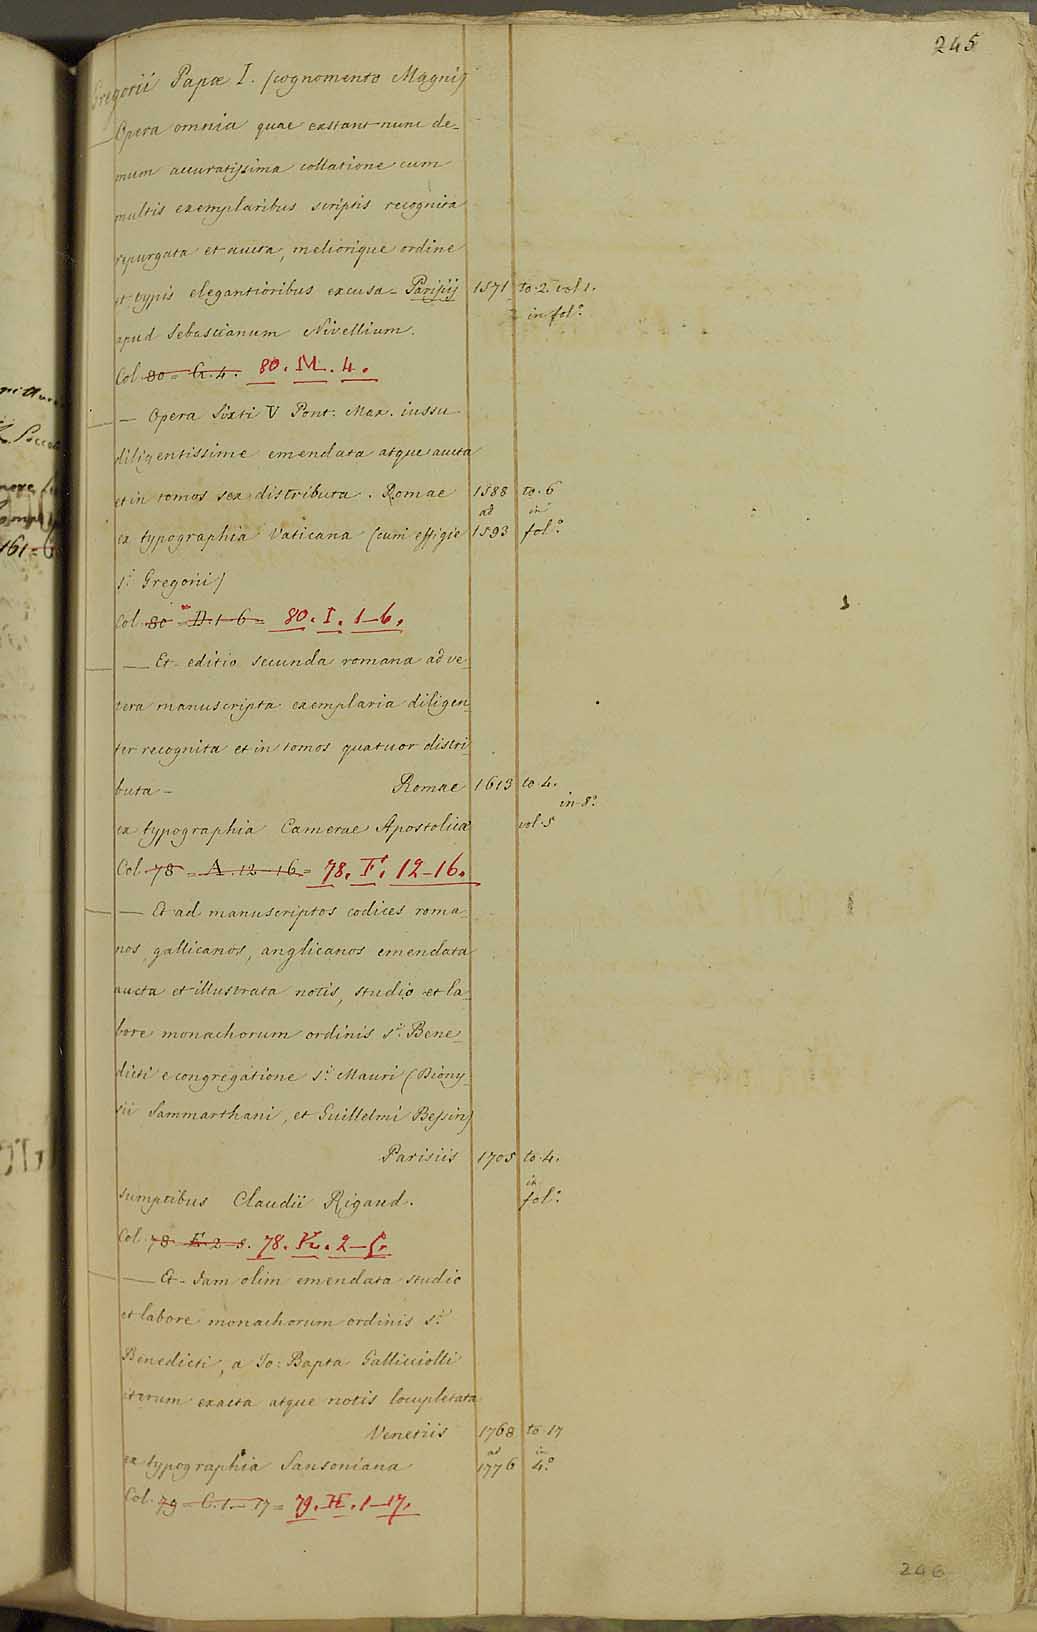 245
Gregorii Papæ I. (cognomento Magni)
Opera omnia quae exstant nunc de-
mum accuratissima collatione cum
multis exemplaribus scriptis recognita
repurgata et aucta, meliorique ordine
et typis elegantioribus excusa - Parisiis 1571 to. 2. vol 1.
in folº
apud Sebastianum Nivellium.
Col. 80 = G. 4. 80. M. 4.
— Opera Sixti V Pont. Max. iussu
diligentissime emendata atque aucta
et in tomos sex distributa. Romae 1588 to. 6
ad in
ex typographia Vaticana (cum effigie 1593 folº
Sⁱ Gregorii)
Col. 80 = D. 1-6 = 80. I. 1-6.
— Et editio secunda romana ad ve-
tera manuscripta exemplaria diligen-
ter recognita et in tomos quatuor distri-
buta - Romae 1613 to 4.
in 8º
ex typographia Camerae Apostolica vol. 5
Col. 78 = A. 12-16 = 78. F. 12-16.
— Et ad manuscriptos codices roma-
nos, gallicanos, anglicanos emendata
aucta et illustrata notis, studio et la-
bore monachorum ordinis Sⁱ Bene-
dicti e congregatione Sⁱ Mauri (Diony-
sii Sammarthani, et Guillelmi Bessin)
Parisiis 1705 to 4.
in
sumptibus Claudii Rigaud. folº
Col. 78. E. 2-5. 78. K. 2-5.
— Et Jam olim emendata studio
et labore monachorum ordinis Sⁱ
Benedicti, a Jo: Bapta Gallicciolli
iterum exacta atque notis locupletata
Venetiis 1768 to 17
ad in
ex typographia Sansoniana 1776 4º
Col. 79 = C. 1-17 = 79. H. 1-17.
246